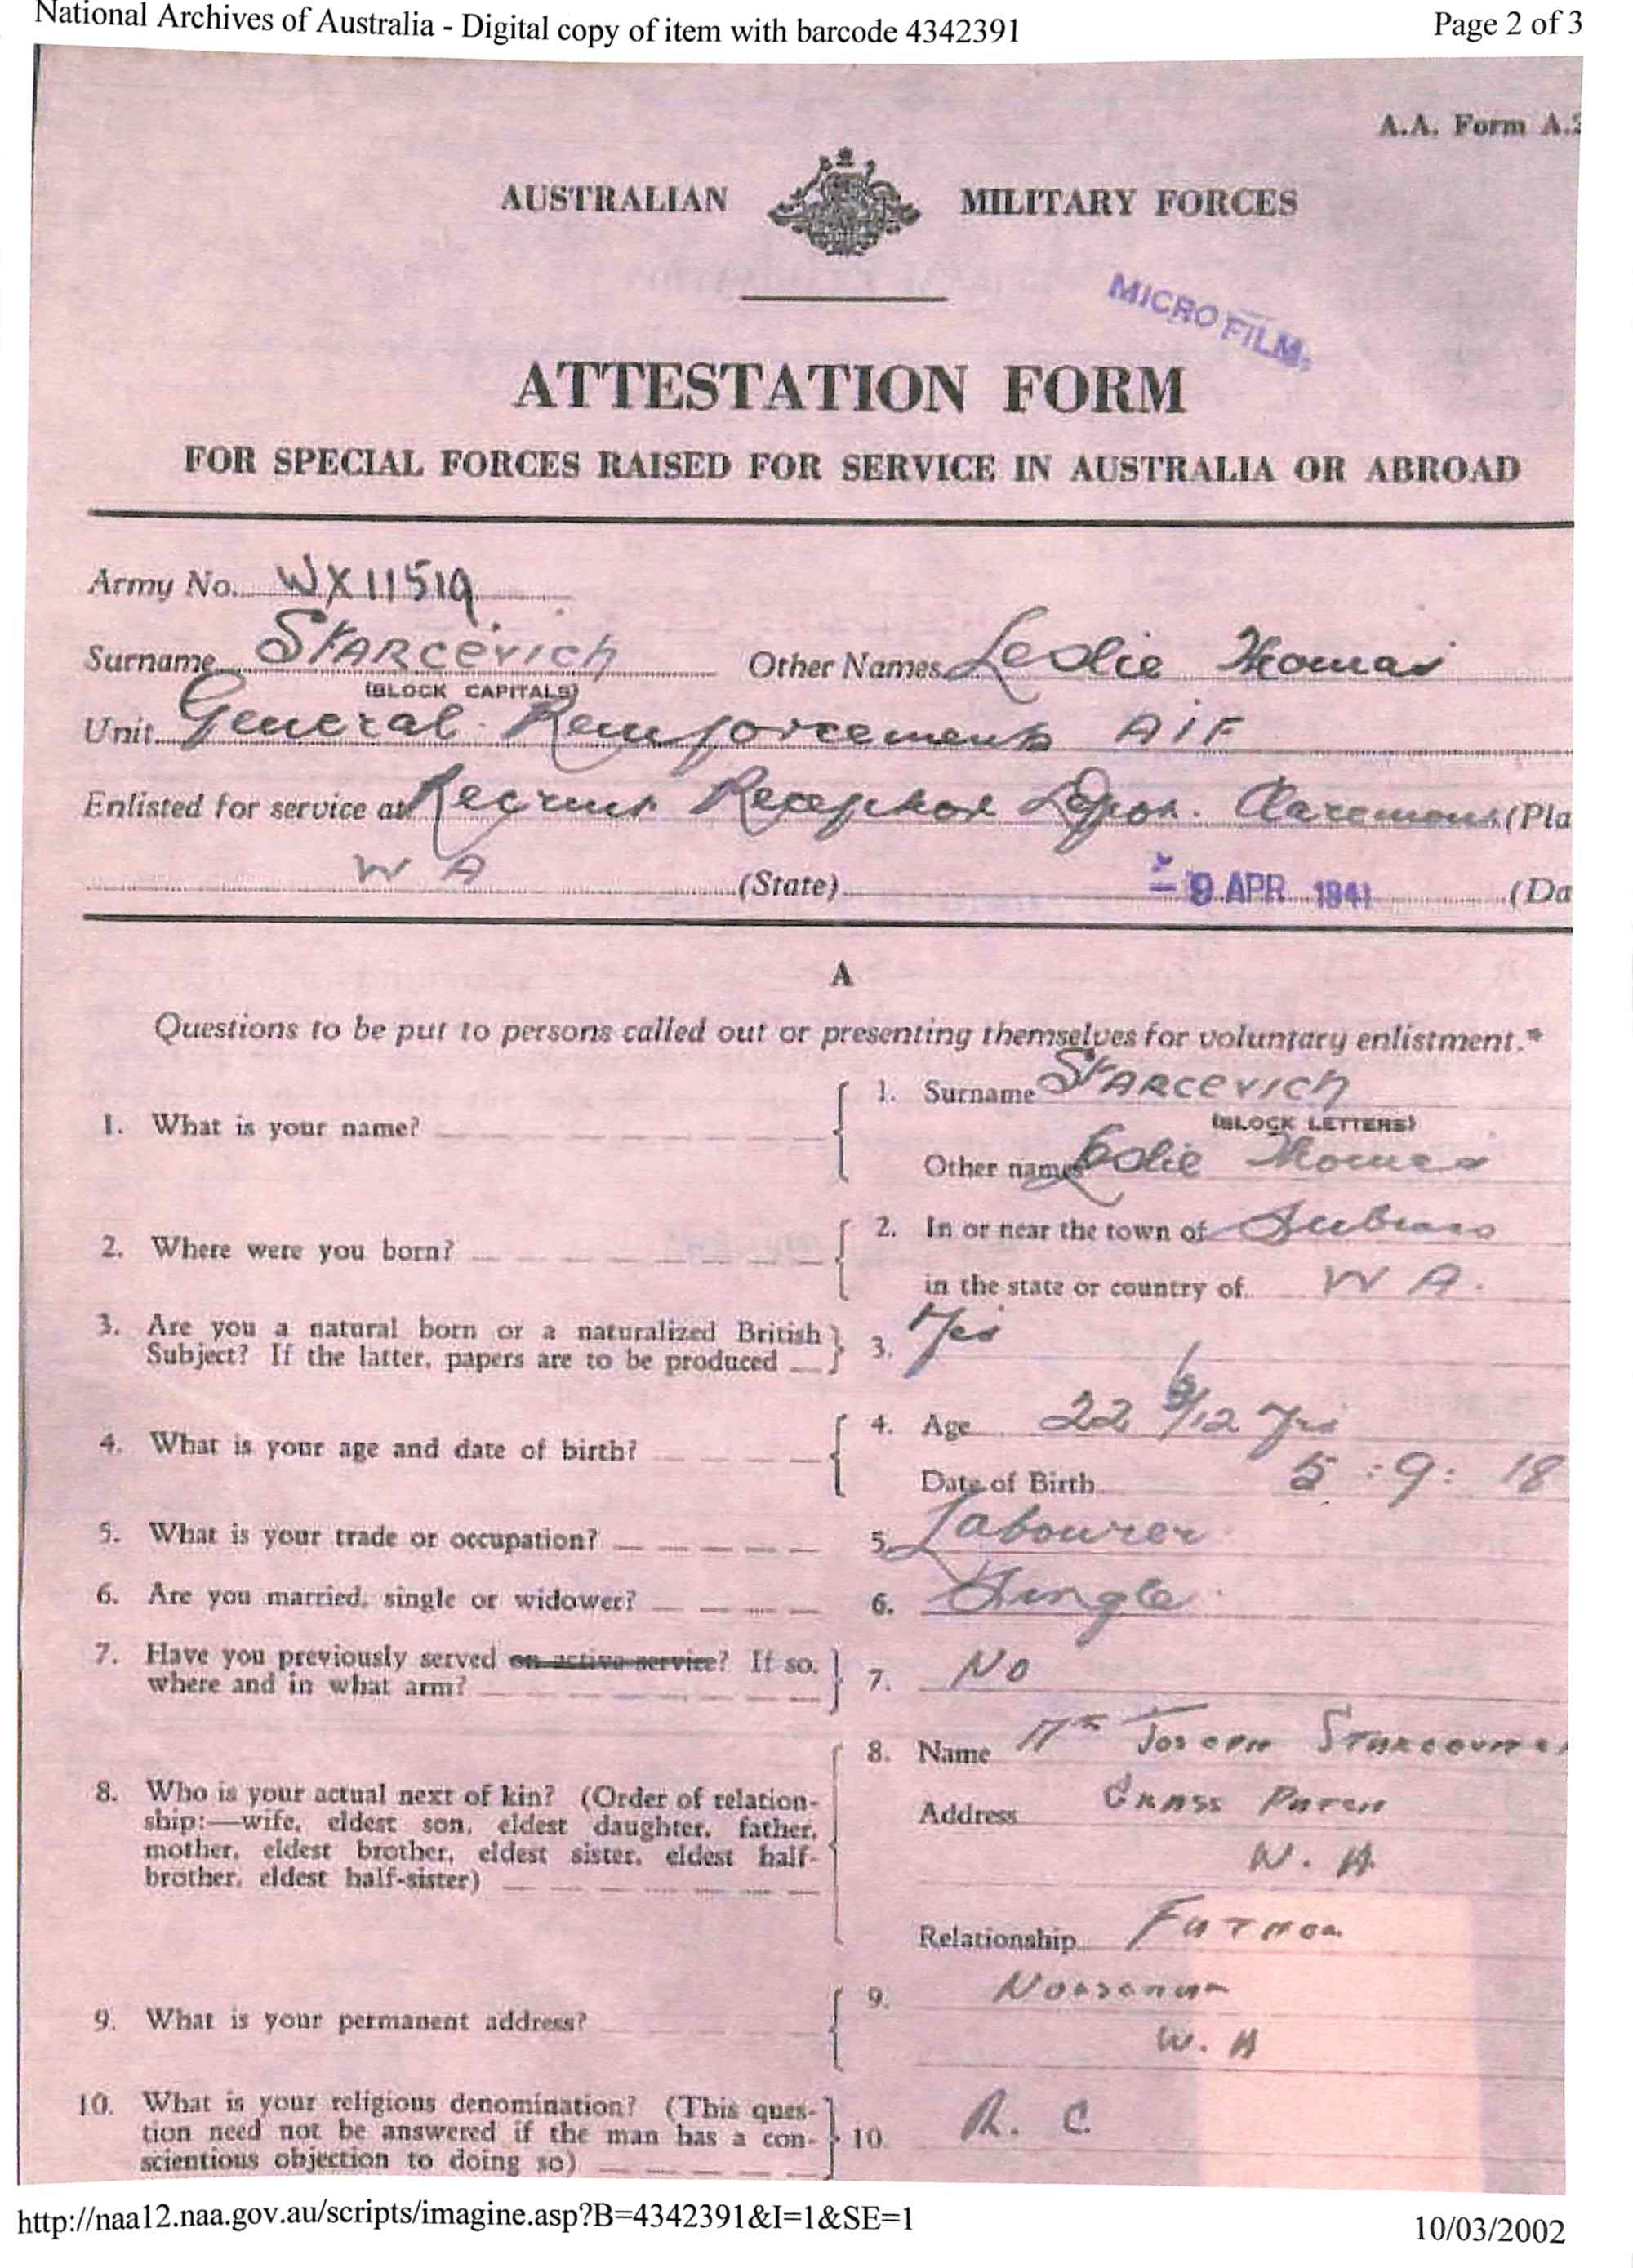 National Archives of Australia - Digital copy of item with barcode 4342391 Page 2 of 3
A.A. Form A.
AUSTRALIAN MILITARY FORCES
MICROFILM
ATTESTATION FORM
FOR SPECIAL FORCES RAISED FOR SERVICE IN AUSTRALIA OR ABROAD
Army No. WX11519
Surname STARCEVICH Other Names Leslie Thomas
(BLOCK CAPITALS)
Unit General Reinforcements AIF
Enlisted for service at Recruit Reception Depot. Claremont (Pla
W A (State) - 9 APR 1941 (Da
A
Questions to be put to persons called out or presenting themselves for voluntary enlistment.*
1. What is your name? 1. Surname STARCEVICH
(BLOCK LETTERS)
Other names Leslie Thomas
2. Where were you born? 2. In or near the town of Subiaco
in the state or country of W A.
3. Are you a natural born or a naturalized British
Subject? If the latter, papers are to be produced 3. Yes
4. What is your age and date of birth? 4. Age 22 /12 Yrs
Date of Birth 5 : 9 : 18
5. What is your trade or occupation? 5. Labourer
6. Are you married, single or widower? 6. Single
7. Have you previously served on active service? If so,
where and in what arm? 7. No
8. Name Mr Joseph Starcevich
8. Who is your actual next of kin? (Order of relation-
ship:—wife, eldest son, eldest daughter, father,
mother, eldest brother, eldest sister, eldest half-
brother, eldest half-sister)
Address Grass Patch
W. A.
Relationship Father
9. What is your permanent address? 9. Norseman
W. A
10. What is your religious denomination? (This ques-
tion need not be answered if the man has a con-
scientious objection to doing so) 10. R. C.
http://naa12.naa.gov.au/scripts/imagine.asp?B=4342391&I=1&SE=1 10/03/2002